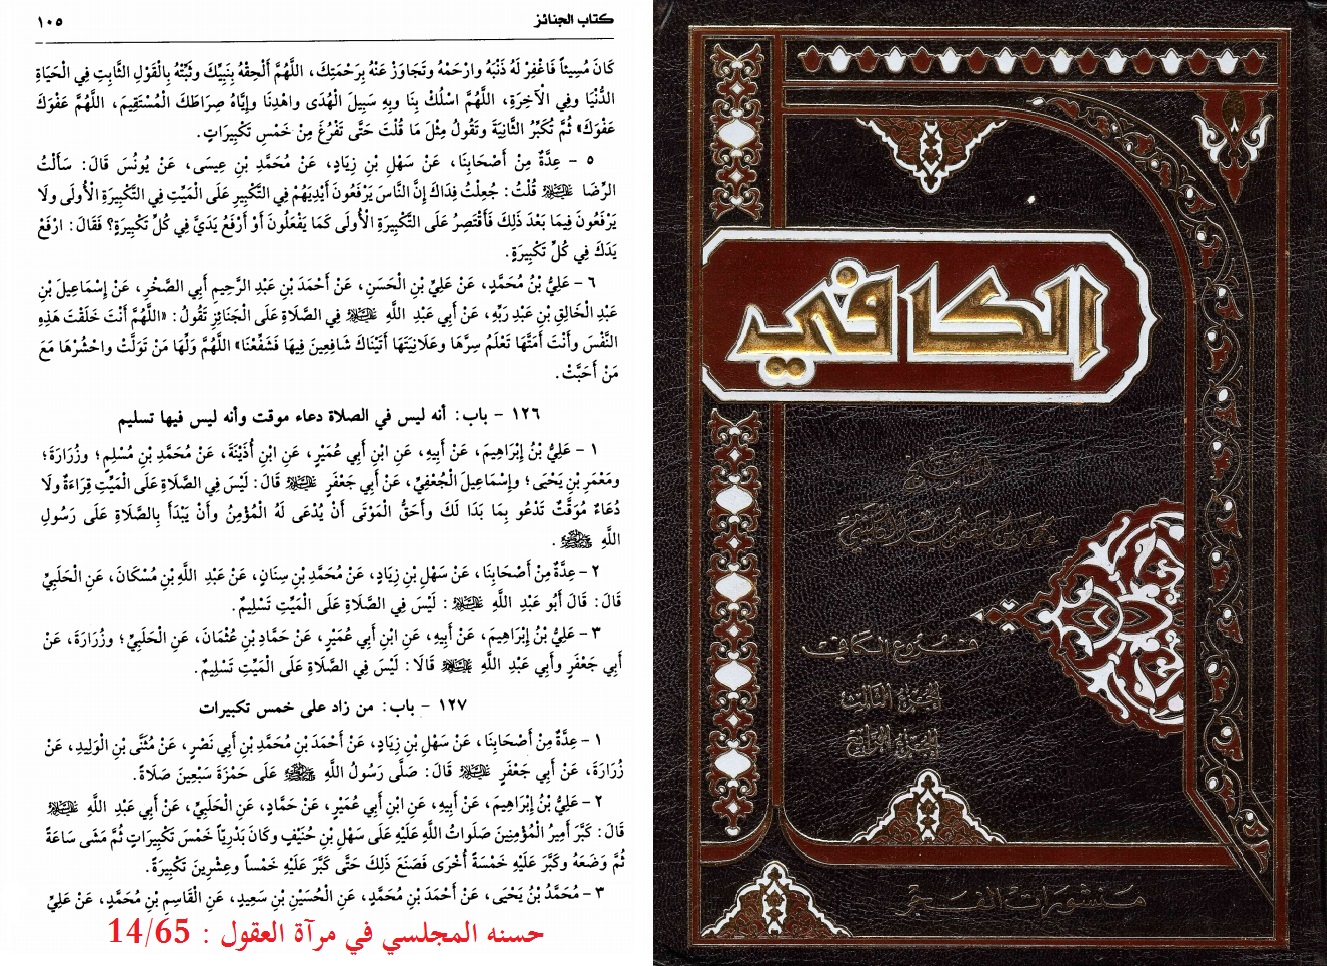 كتاب الجنائز
١٠٥
كَانَ مُسِيئاً فَاغْفِرْ لَهُ ذَنْبَهُ وارْحَمْهُ وتَجَاوَزْ عَنْهُ بِرَحْمَتِكَ، اللَّهُمَّ أَلْحِقْهُ بِنَبِيِّكَ وثَبِّتْهُ بِالْقَوْلِ الثَّابِتِ فِي الْحَيَاةِ
الدُّنْيَا وفِي الْآخِرَةِ، اللَّهُمَّ اسْلُكْ بِنَا وبِهِ سَبِيلَ الْهُدَى واهْدِنَا وإِيَّاهُ صِرَاطَكَ الْمُسْتَقِيمَ، اللَّهُمَّ عَفْوَكَ
عَفْوَكَ» ثُمَّ تُكَبِّرُ الثَّانِيَةَ وتَقُولُ مِثْلَ مَا قُلْتَ حَتَّى تَفْرُغَ مِنْ خَمْسِ تَكْبِيرَاتٍ.
٥ - عِدَّةٌ مِنْ أَصْحَابِنَا، عَنْ سَهْلِ بْنِ زِيَادٍ، عَنْ مُحَمَّدِ بْنِ عِيسَى، عَنْ يُونُسَ قَالَ: سَأَلْتُ
الرِّضَا عليه السلام قُلْتُ: جُعِلْتُ فِدَاكَ إِنَّ النَّاسَ يَرْفَعُونَ أَيْدِيَهُمْ فِي التَّكْبِيرِ عَلَى الْمَيِّتِ فِي التَّكْبِيرَةِ الْأُولَى ولَا
يَرْفَعُونَ فِيمَا بَعْدَ ذَلِكَ فَأَقْتَصِرُ عَلَى التَّكْبِيرَةِ الْأُولَى كَمَا يَفْعَلُونَ أَوْ أَرْفَعُ يَدَيَّ فِي كُلِّ تَكْبِيرَةٍ؟ فَقَالَ: ارْفَعْ
يَدَكَ فِي كُلِّ تَكْبِيرَةٍ.
٦ - عَلِيُّ بْنُ مُحَمَّدٍ، عَنْ عَلِيِّ بْنِ الْحَسَنِ، عَنْ أَحْمَدَ بْنِ عَبْدِ الرَّحِيمِ أَبِي الصَّخْرِ، عَنْ إِسْمَاعِيلَ بْنِ
عَبْدِ الْخَالِقِ بْنِ عَبْدِ رَبِّهِ، عَنْ أَبِي عَبْدِ اللَّهِ عليه السلام فِي الصَّلَاةِ عَلَى الْجَنَائِزِ تَقُولُ: «اللَّهُمَّ أَنْتَ خَلَقْتَ هَذِهِ
النَّفْسَ وأَنْتَ أَمَتَّهَا تَعْلَمُ سِرَّهَا وعَلَانِيَتَهَا أَتَيْنَاكَ شَافِعِينَ فِيهَا فَشَفِّعْنَا» اللَّهُمَّ وَلِّهَا مَنْ تَوَلَّتْ واحْشُرْهَا مَعَ
مَنْ أَحَبَّتْ.
١٢٦ - باب: أنه ليس في الصلاة دعاء موقت وأنه ليس فيها تسليم
١ - عَلِيُّ بْنُ إِبْرَاهِيمَ، عَنْ أَبِيهِ، عَنِ ابْنِ أَبِي عُمَيْرٍ، عَنِ ابْنِ أُذَيْنَةَ، عَنْ مُحَمَّدِ بْنِ مُسْلِمٍ؛ وزُرَارَةَ؛
ومَعْمَرِ بْنِ يَحْيَى؛ وإِسْمَاعِيلَ الْجُعْفِيِّ، عَنْ أَبِي جَعْفَرٍ عليه السلام قَالَ: لَيْسَ فِي الصَّلَاةِ عَلَى الْمَيِّتِ قِرَاءَةٌ ولَا
دُعَاءٌ مُوَقَّتٌ تَدْعُو بِمَا بَدَا لَكَ وأَحَقُّ الْمَوْتَى أَنْ يُدْعَى لَهُ الْمُؤْمِنُ وأَنْ يُبْدَأَ بِالصَّلَاةِ عَلَى رَسُولِ
اللَّهِ ﷺ.
٢ - عِدَّةٌ مِنْ أَصْحَابِنَا، عَنْ سَهْلِ بْنِ زِيَادٍ، عَنْ مُحَمَّدِ بْنِ سِنَانٍ، عَنْ عَبْدِ اللَّهِ بْنِ مُسْكَانَ، عَنِ الْحَلَبِيِّ
قَالَ: قَالَ أَبُو عَبْدِ اللَّهِ عليه السلام: لَيْسَ فِي الصَّلَاةِ عَلَى الْمَيِّتِ تَسْلِيمٌ.
٣ - عَلِيُّ بْنُ إِبْرَاهِيمَ، عَنْ أَبِيهِ، عَنِ ابْنِ أَبِي عُمَيْرٍ، عَنْ حَمَّادِ بْنِ عُثْمَانَ، عَنِ الْحَلَبِيِّ؛ وزُرَارَةَ، عَنْ
أَبِي جَعْفَرٍ وأَبِي عَبْدِ اللَّهِ عليه السلام قَالَا: لَيْسَ فِي الصَّلَاةِ عَلَى الْمَيِّتِ تَسْلِيمٌ.
١٢٧ - باب: من زاد على خمس تكبيرات
١ - عِدَّةٌ مِنْ أَصْحَابِنَا، عَنْ سَهْلِ بْنِ زِيَادٍ، عَنْ أَحْمَدَ بْنِ مُحَمَّدِ بْنِ أَبِي نَصْرٍ، عَنْ مُثَنَّى بْنِ الْوَلِيدِ، عَنْ
زُرَارَةَ، عَنْ أَبِي جَعْفَرٍ عليه السلام قَالَ: صَلَّى رَسُولُ اللَّهِ ﷺ عَلَى حَمْزَةَ سَبْعِينَ صَلَاةً.
٢ - عَلِيُّ بْنُ إِبْرَاهِيمَ، عَنْ أَبِيهِ، عَنِ ابْنِ أَبِي عُمَيْرٍ، عَنْ حَمَّادٍ، عَنِ الْحَلَبِيِّ، عَنْ أَبِي عَبْدِ اللَّهِ عليه السلام
قَالَ: كَبَّرَ أَمِيرُ الْمُؤْمِنِينَ صَلَوَاتُ اللَّهِ عَلَيْهِ عَلَى سَهْلِ بْنِ حُنَيْفٍ وكَانَ بَدْرِيّاً خَمْسَ تَكْبِيرَاتٍ ثُمَّ مَشَى سَاعَةً
ثُمَّ وَضَعَهُ وكَبَّرَ عَلَيْهِ خَمْسَةً أُخْرَى فَصَنَعَ ذَلِكَ حَتَّى كَبَّرَ عَلَيْهِ خَمْساً وعِشْرِينَ تَكْبِيرَةً.
٣ - مُحَمَّدُ بْنُ يَحْيَى، عَنْ أَحْمَدَ بْنِ مُحَمَّدٍ، عَنِ الْحُسَيْنِ بْنِ سَعِيدٍ، عَنِ الْقَاسِمِ بْنِ مُحَمَّدٍ، عَنْ عَلِيِّ
حسنه المجلسي في مرآة العقول : 14/65
الكافي
الشيخ
محمد بن يعقوب الكليني
فروع الكافي
الجزء الثالث
الجزء الرابع
منشورات الفجر